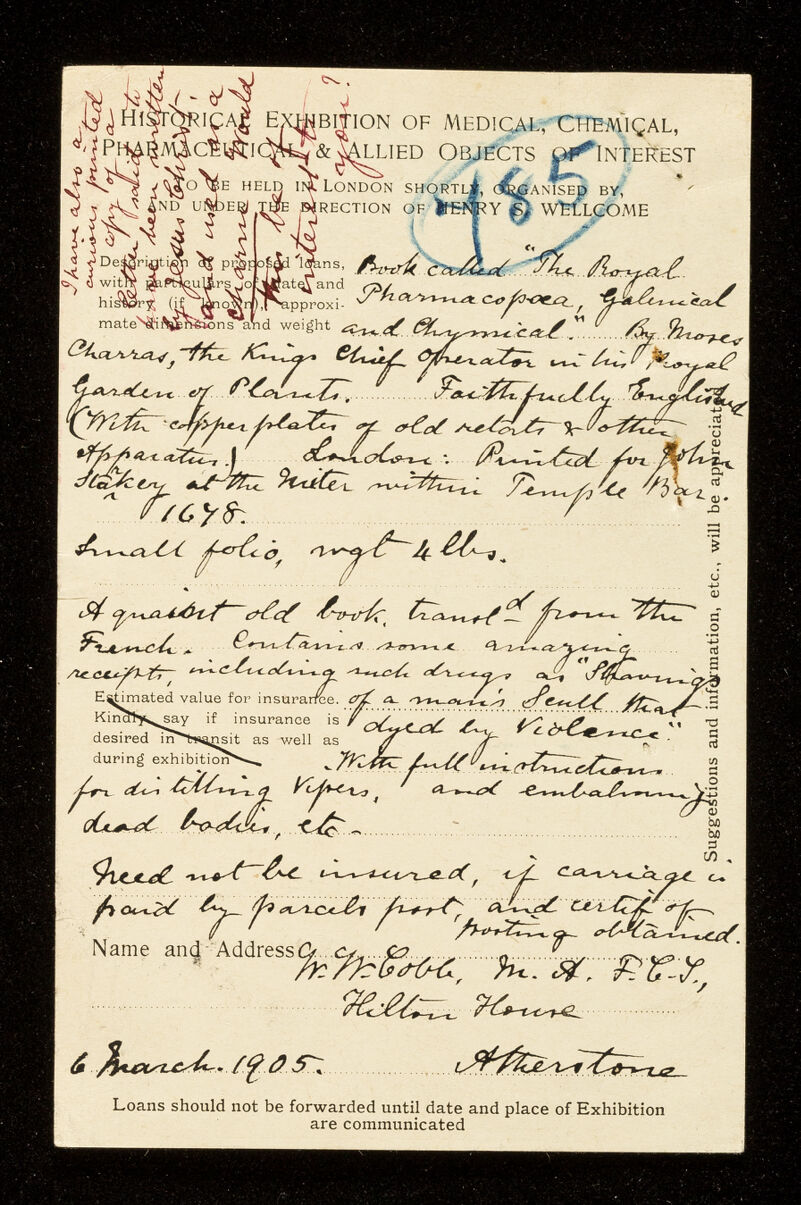 I have also a
curious printed
copy of a
letter said to
have been written
by Jesus Christ,
and used as a
charm. Would
this be of
interest to
you?
HISTORICAL EXHIBITION OF MEDICAL, CHEMICAL,
PHARMACEUTICAL & ALLIED OBJECTS OF INTEREST
TO BE HELD IN LONDON SHORTLY, ORGANISED BY,
AND UNDER THE DIRECTION OF HENRY S. WELLCOME
485
Description of proposed loans,
with particulars of date and
history (if known), approxi-
mate dimensions and weight
Book called "The Royal
Pharmacopœa, Galenical
and Chymical." By Moses
Charras, the Kings Chief Operator in his Royal
Garden of Plants. Faithfully Englished
(With copper plates of old retorts & other
Apparatus.) London: Printed for John
Starkey at the Miter within Temple Bar.
1678.
Small folio, wgt 4 lbs.
A quaint old book, transld from the
French. Contains some amazing
receipts, including such drugs as "Shavings
of a man's Scull that
dyed by Violence."
Estimated value for insurance.
Kindly say if insurance is
desired in transit as well as
during exhibition
With full instructions
for distilling Vipers, and embalming
dead bodies, etc.
Need not be insured, if carriage is
paid by parcels post, and certif of
posting obtained.
Name and Address
W. W. Cobb, M. A. F.C.S.,
Hilton House
6 March. 1905. Atherstone
Loans should not be forwarded until date and place of Exhibition
are communicated
Suggestions and information, etc., will be appreciated